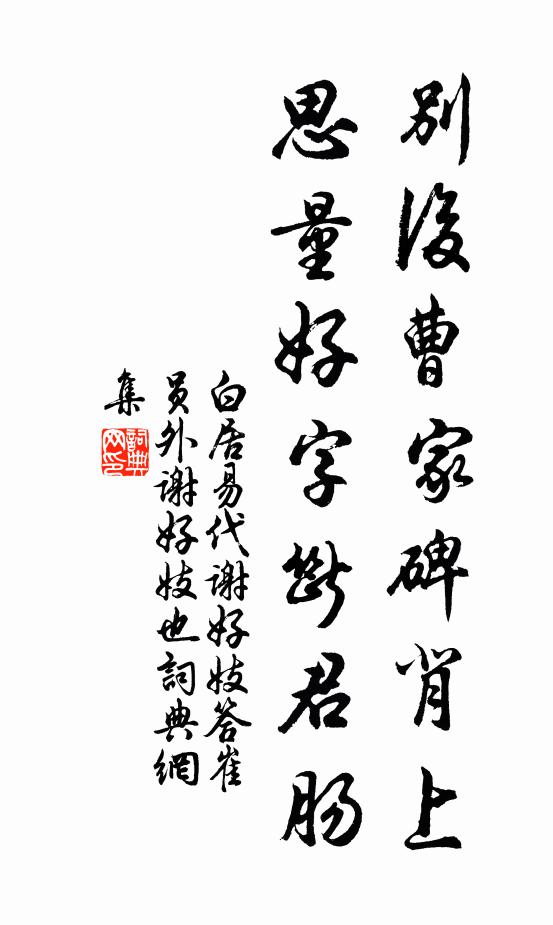 別後曹家碑背上
思量好字斷君腸
白居易代謝好妓答崔
員外謝好妓也詞典網
集
詞典
网印